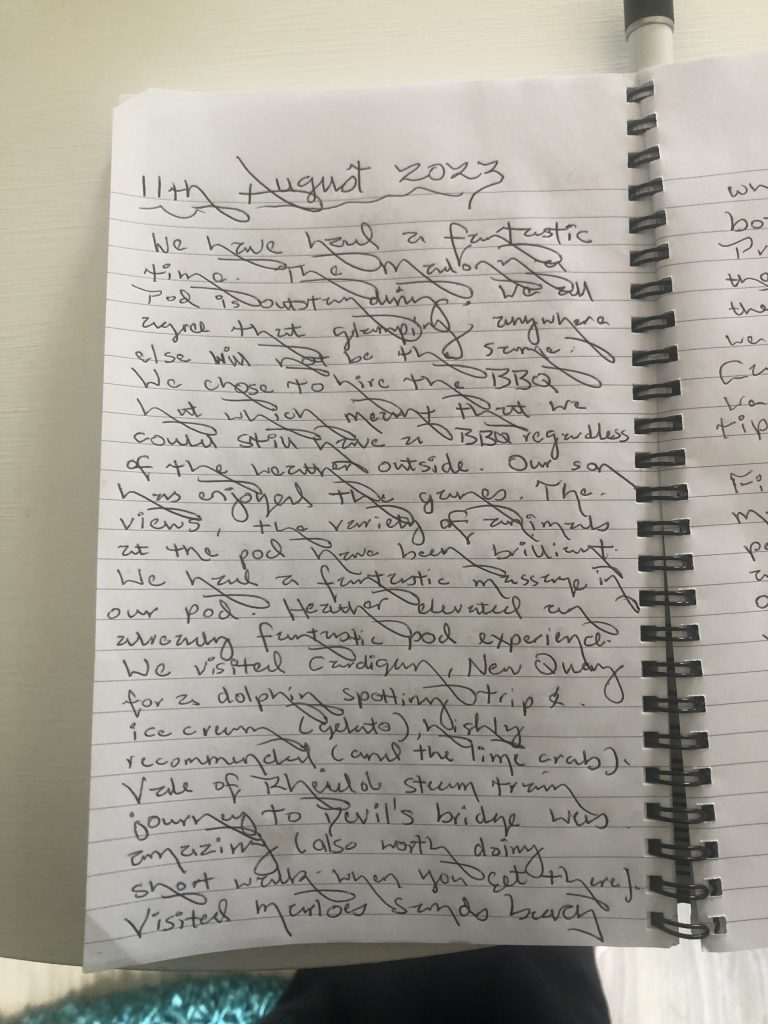 11th August 2023
We have had a fantastic
time. The Madonna
Pod is outstanding. We all
agree that glamping anywhere
else will not be the same.
We chose to hire the BBQ
hut which meant that we
could still have a BBQ regardless
of the weather outside. Our son
has enjoyed the games. The
views, the variety of animals
at the pod have been brilliant.
We had a fantastic massage in
our pod. Heather elevated an
already fantastic pod experience.
We visited Cardigan, New Quay
for a dolphin spotting trip &
ice cream (gelato), highly
recommended (and the lime crab).
Vale of Rheidol steam train
journey to Devil's bridge was
amazing (also worth doing
short walk when you get there).
Visited Marloes Sands beach
wh
bo
Pr
the
the
we
tip
Fi
m